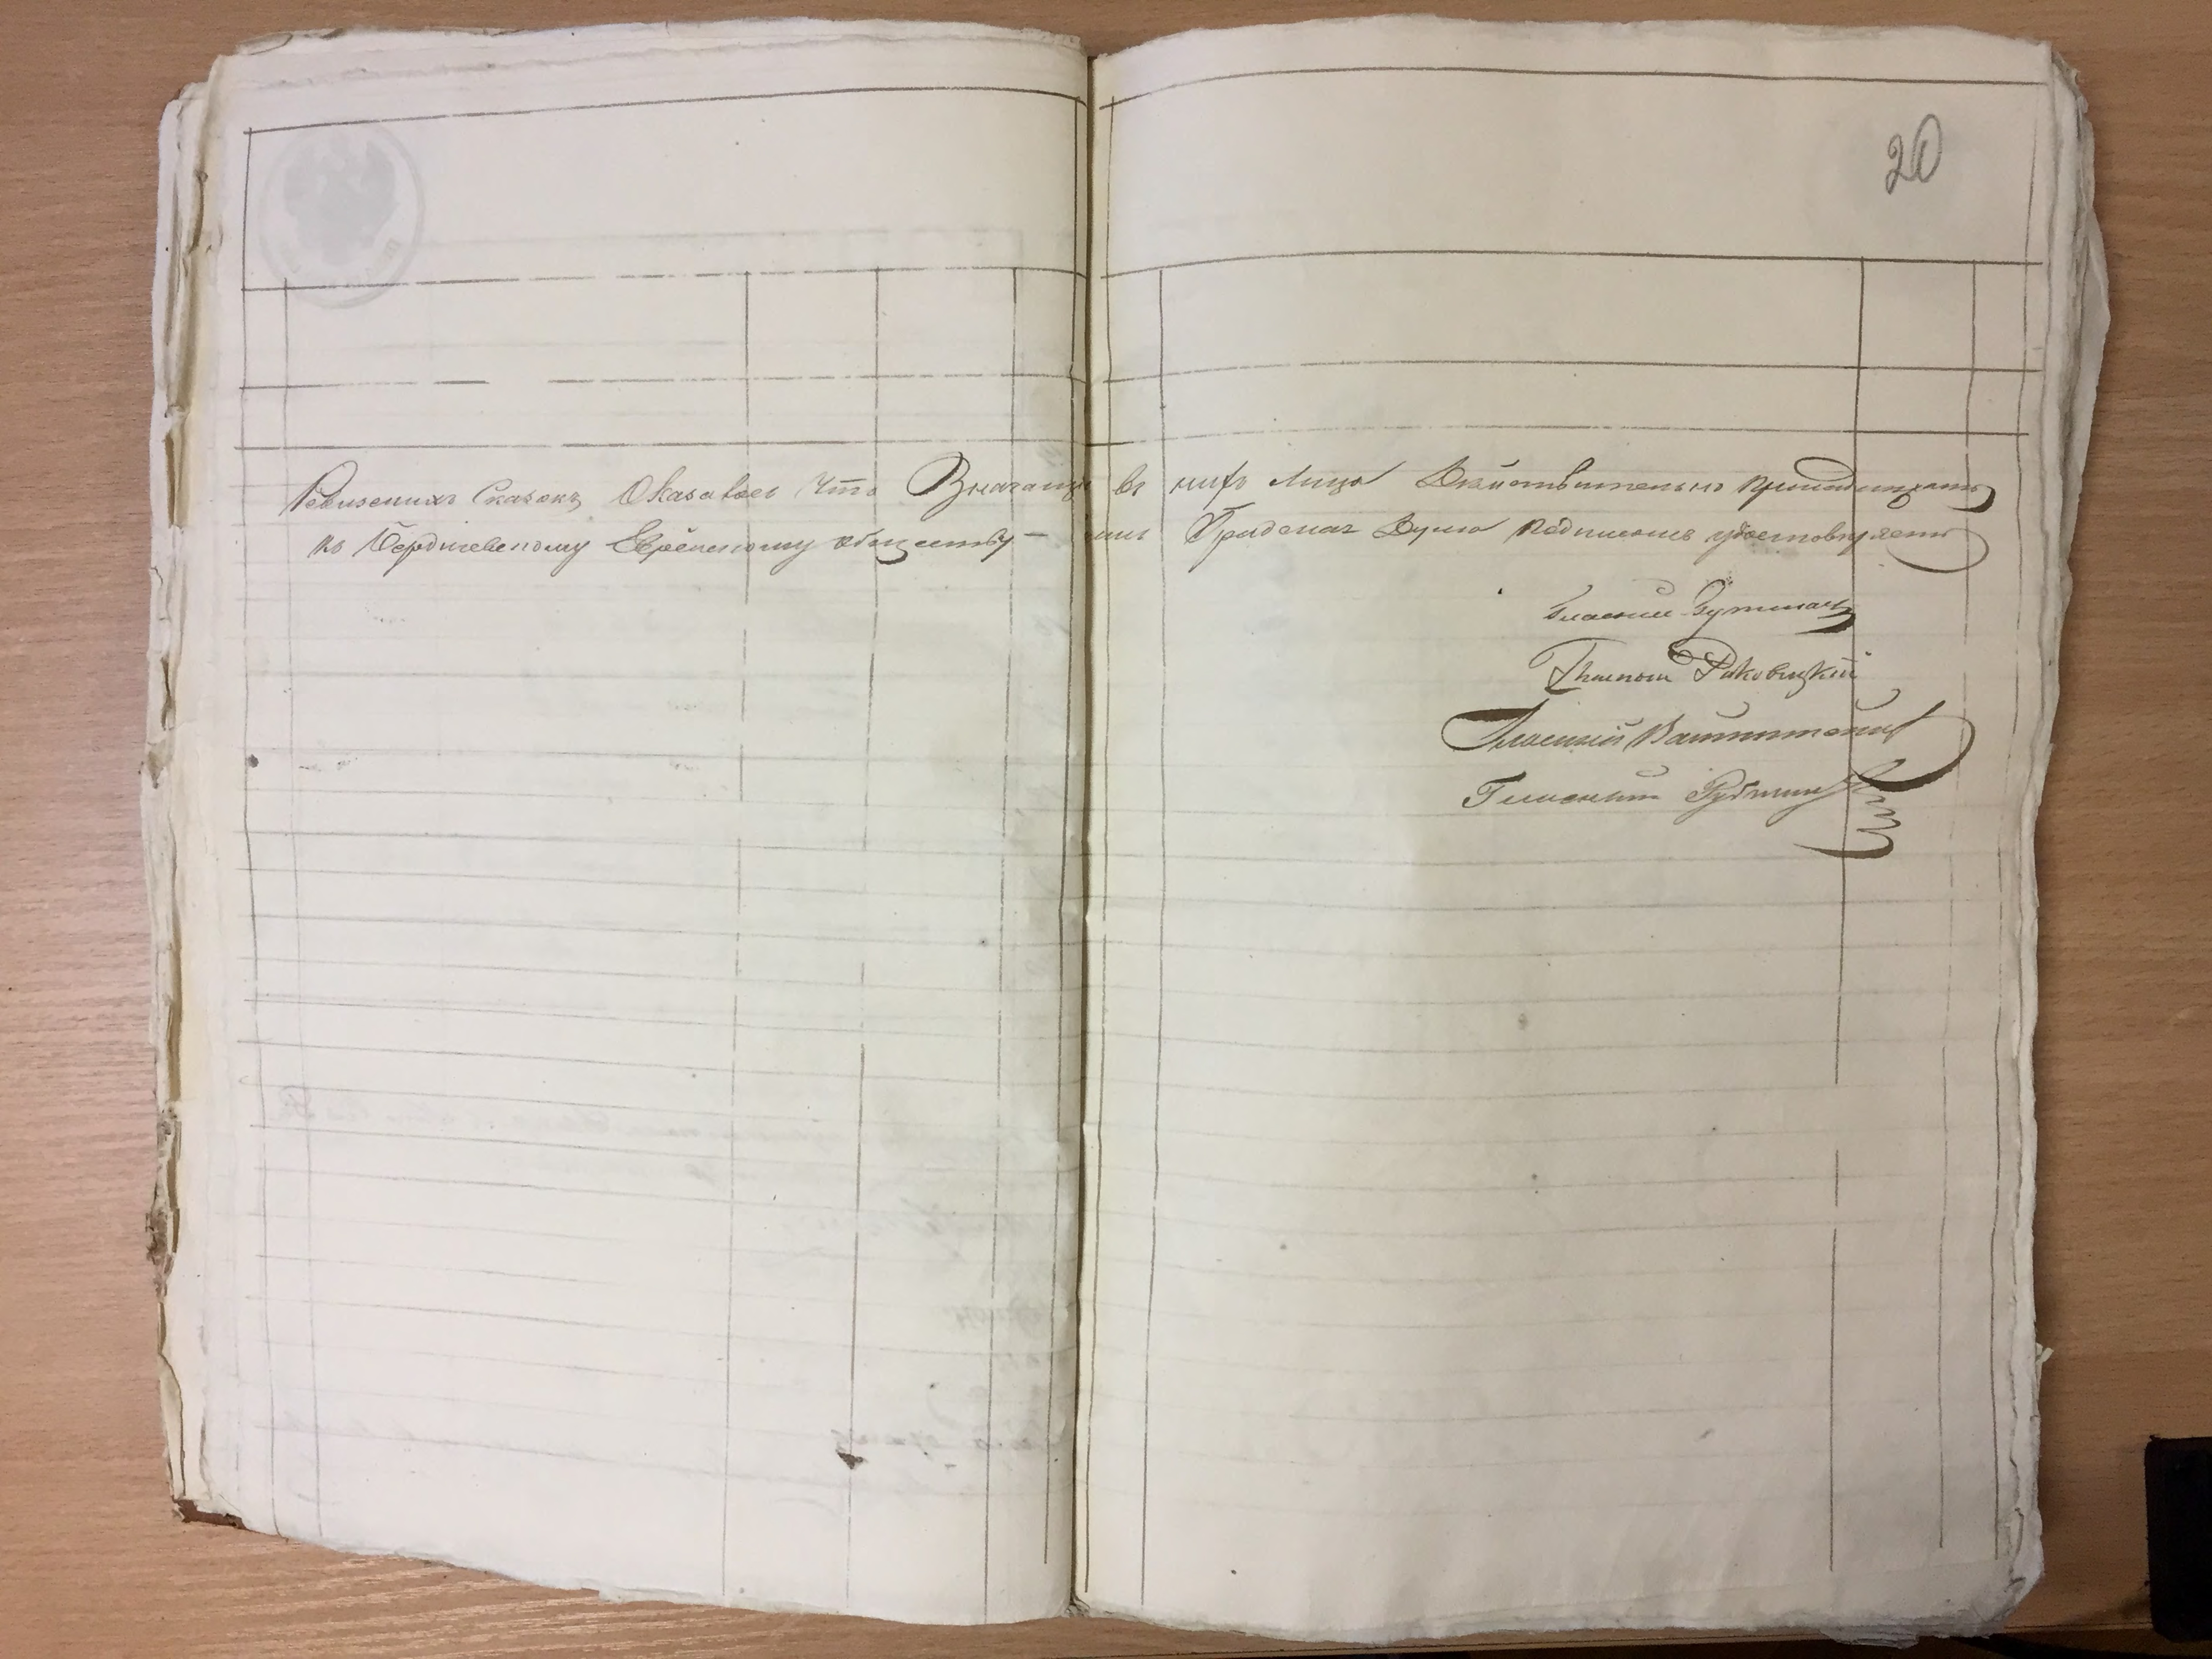 20
Ревизскихъ Сказокъ Оказалось что Значащи въ нихъ лица Действительно принадлежатъ
къ Бердичевскому Еврейскому обществу — Градская Дума подписомъ удостоверяетъ
Гласный Гутман
Гласный Раковицкий
Гласный Ваинштейнъ
Гласный